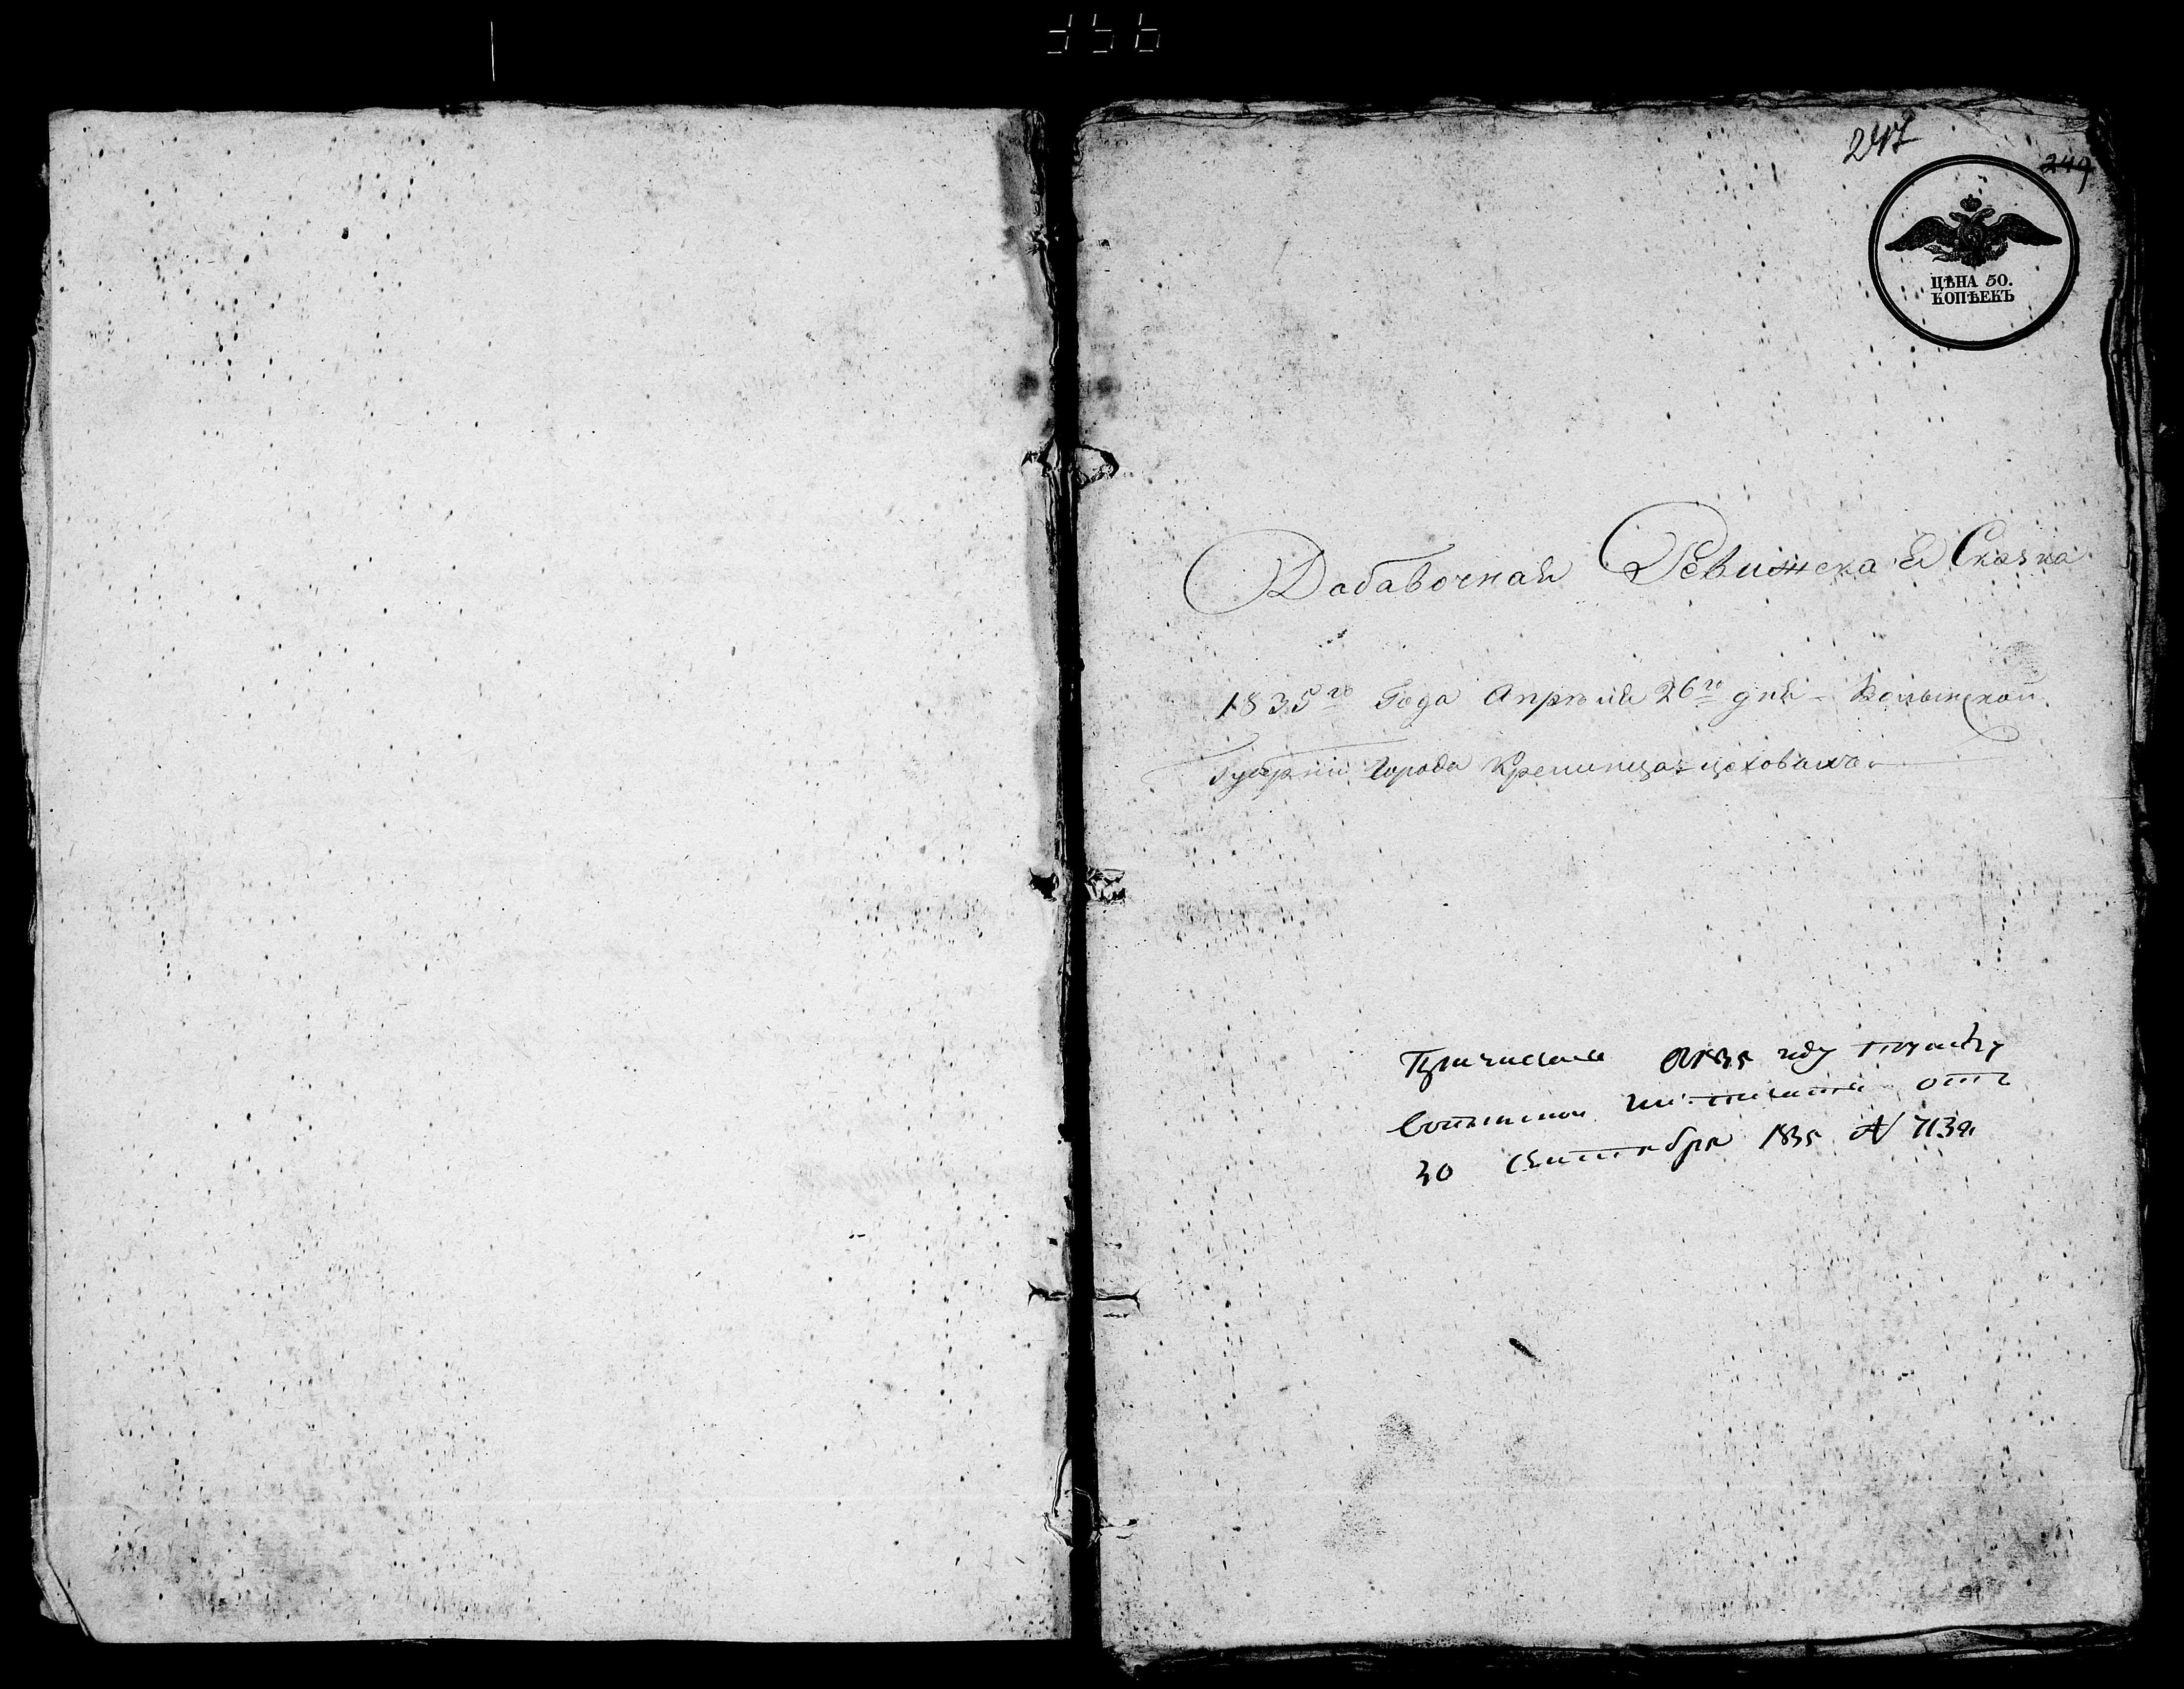 247
249
ЦѢНА 50.
КОПѢЕКЪ
Добавочная Ревижская Сказка
1835го Года Апрѣля 26го дня Волынской
Губерніи Города Кременца цеховыхъ
Причислены 1835 году по указу
Волынской отъ
30 Сентября 1835 N 7134